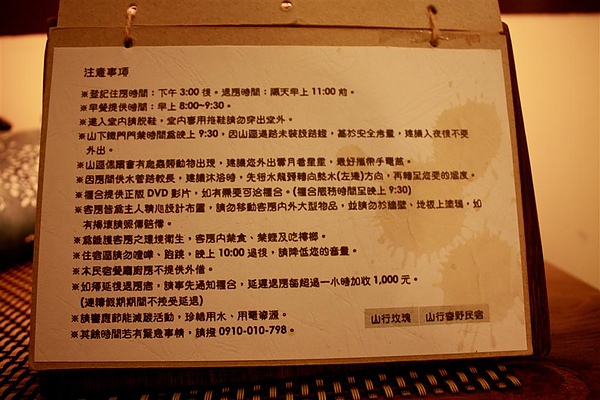 注意事項
※登記住房時間：下午 3:00 後。退房時間：隔天早上 11:00 前。
※早餐提供時間：早上 8:00~9:30。
※進入室內請脫鞋，室內專用拖鞋請勿穿出室外。
※山下鐵門門禁時間為晚上 9:30，因山區道路未裝設路燈，基於安全考量，建議入夜後不要
外出。
※山區偶爾會有昆蟲類動物出現，建議您外出賞月看星星，最好攜帶手電筒。
※因房間供水管路較長，建議沐浴時，先將水龍頭轉向熱水(左邊)方向，再轉至您要的溫度。
※櫃台提供正版 DVD 影片，如有需要可洽櫃台。(櫃台服務時間至晚上 9:30)
※客房皆為主人精心設計布置，請勿移動客房內外大型物品，並請勿於牆壁、地板上塗鴉，如
有損壞請照價賠償。
※為維護客房之環境衛生，客房內禁食、禁菸及吃檳榔。
※住宿區請勿喧嘩、跑跳，晚上 10:00 過後，請降低您的音量。
※本民宿餐廳廚房不提供外借。
※如需延後退房者，請事先通知櫃台，延遲退房每超過一小時加收 1,000 元。
(連續假期期間不接受延退)
※請響應節能減碳活動，珍惜用水、用電資源。
※其餘時間若有緊急事情，請撥 0910-010-798。
山行玫瑰 山行春野民宿